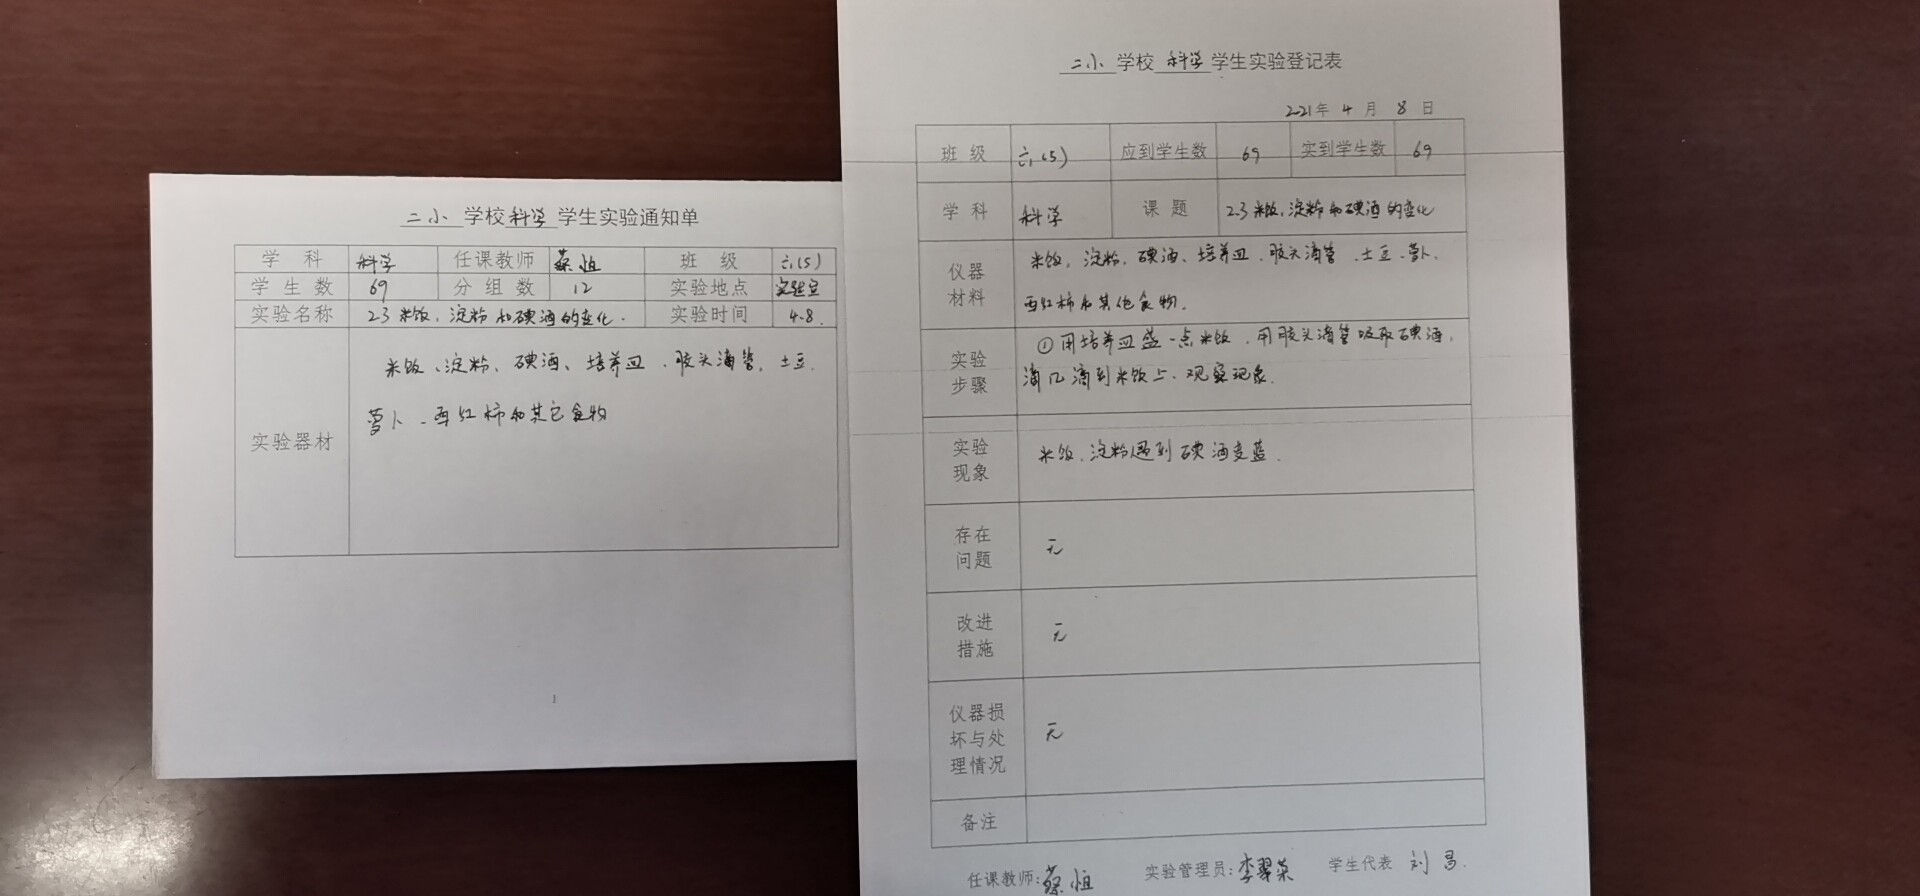 二小 学校 科学 学生实验通知单
学 科 科学 任课教师 蔡恒 班 级 六(5)
学 生 数 69 分 组 数 12 实验地点 实验室
实验名称 2.3 米饭、淀粉和碘酒的变化. 实验时间 4.8.
实验器材
米饭、淀粉、碘酒、培养皿、胶头滴管、土豆、
萝卜、西红柿和其它食物
1
二小 学校 科学 学生实验登记表
2021年 4 月 8 日
班 级 六(5) 应到学生数 69 实到学生数 69
学 科 科学 课 题 2.3 米饭、淀粉和碘酒的变化
仪器
材料
米饭、淀粉、碘酒、培养皿、胶头滴管、土豆、萝卜、
西红柿和其他食物.
实验
步骤
①用培养皿盛一点米饭、用胶头滴管吸取碘酒,
滴几滴到米饭上、观察现象.
实验
现象
米饭、淀粉遇到碘酒变蓝.
存在
问题
无
改进
措施
无
仪器损
坏与处
理情况
无
备注
任课教师:蔡恒 实验管理员:李翠荣 学生代表 刘昌.